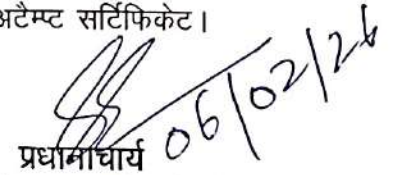 अटैम्प्ट सर्टिफिकेट।
06/02/26
प्रधानाचार्य